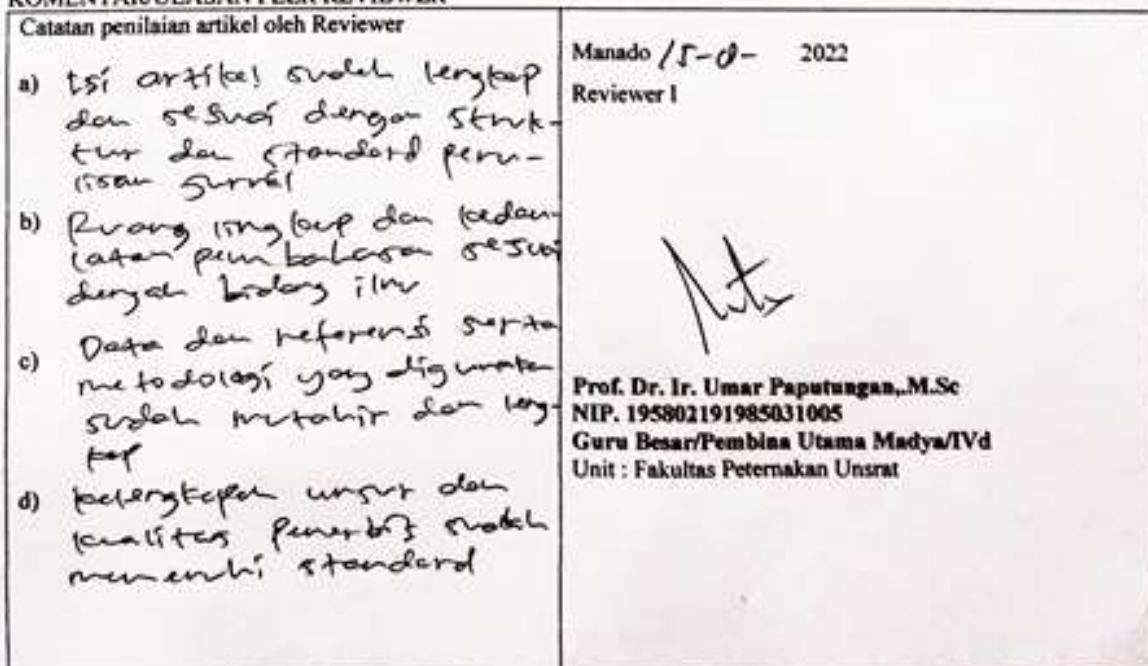 KOMENTAR/ULASAN PEER REVIEWER
Catatan penilaian artikel oleh Reviewer
a) Isi artikel sudah lengkap
dan sesuai dengan struk-
tur dan standard penu-
lisan jurnal
b) Ruang lingkup dan kedau-
latan pembahasan sesuai
dengan bidang ilmu
c) Data dan referensi serta
metodologi yang digunakan
sudah mutahir dan leng
kap
d) kelengkapan unsur dan
kualitas penerbit sudah
memenuhi standard
Manado 15-8- 2022
Reviewer I
Prof. Dr. Ir. Umar Paputungan,.M.Sc
NIP. 195802191985031005
Guru Besar/Pembina Utama Madya/IVd
Unit : Fakultas Peternakan Unsrat